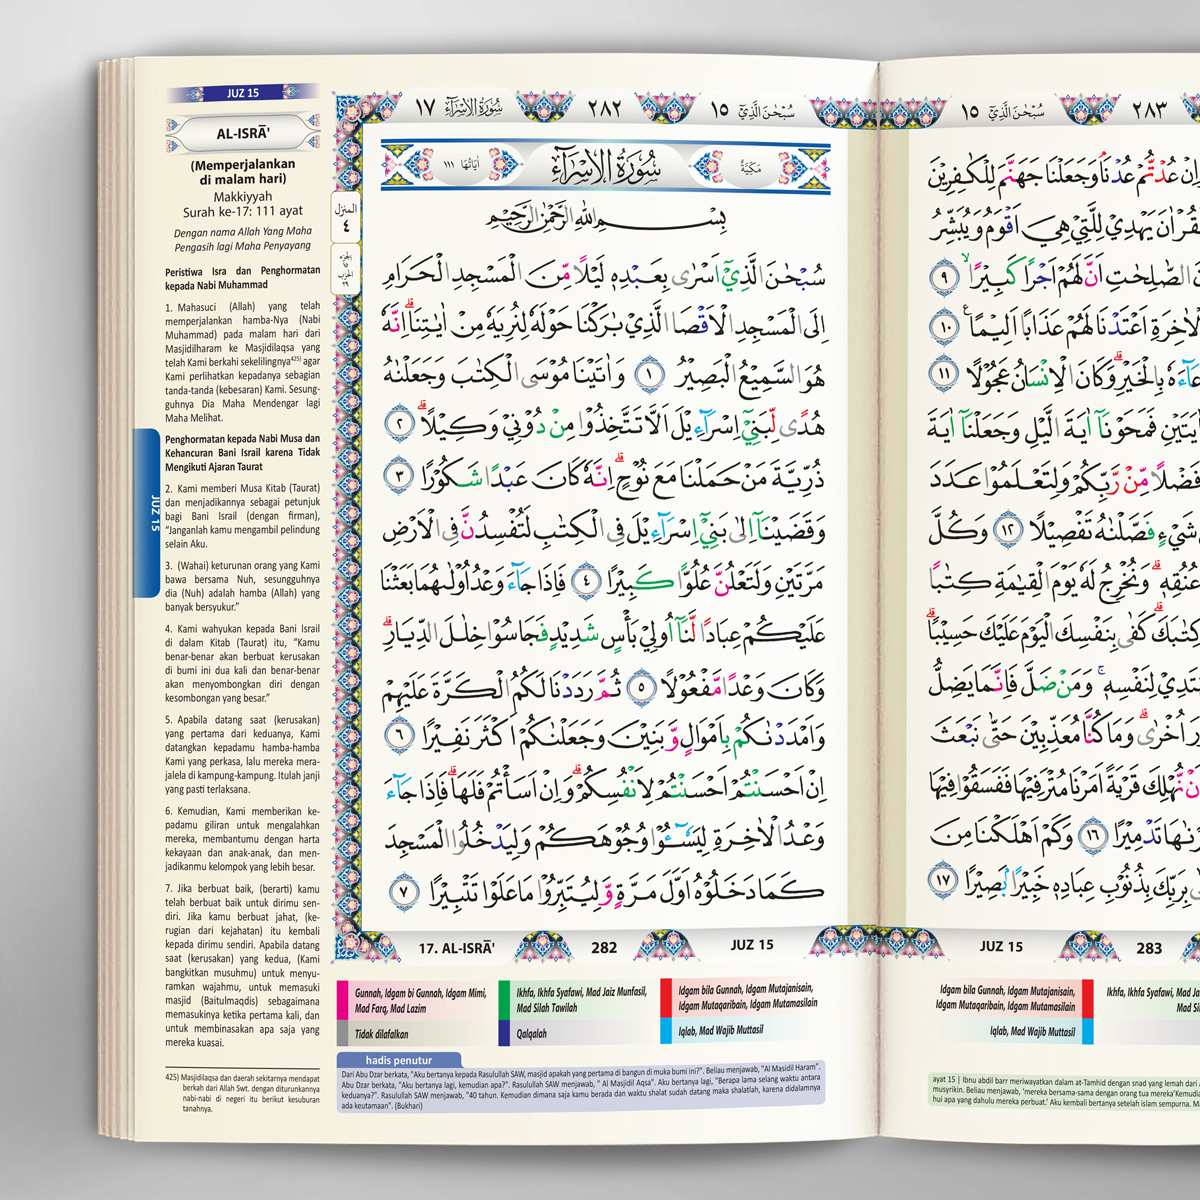 JUZ 15
AL-ISRĀ'
(Memperjalankan
di malam hari)
Makkiyyah
Surah ke-17: 111 ayat
Dengan nama Allah Yang Maha
Pengasih lagi Maha Penyayang
Peristiwa Isra dan Penghormatan
kepada Nabi Muhammad
1. Mahasuci (Allah) yang telah
memperjalankan hamba-Nya (Nabi
Muhammad) pada malam hari dari
Masjidilharam ke Masjidilaqsa yang
telah Kami berkahi sekelilingnya⁴²⁵⁾ agar
Kami perlihatkan kepadanya sebagian
tanda-tanda (kebesaran) Kami. Sesung-
guhnya Dia Maha Mendengar lagi
Maha Melihat.
Penghormatan kepada Nabi Musa dan
Kehancuran Bani Israil karena Tidak
Mengikuti Ajaran Taurat
2. Kami memberi Musa Kitab (Taurat)
dan menjadikannya sebagai petunjuk
bagi Bani Israil (dengan firman),
"Janganlah kamu mengambil pelindung
selain Aku.
3. (Wahai) keturunan orang yang Kami
bawa bersama Nuh, sesungguhnya
dia (Nuh) adalah hamba (Allah) yang
banyak bersyukur.”
4. Kami wahyukan kepada Bani Israil
di dalam Kitab (Taurat) itu, “Kamu
benar-benar akan berbuat kerusakan
di bumi ini dua kali dan benar-benar
akan menyombongkan diri dengan
kesombongan yang besar.”
5. Apabila datang saat (kerusakan)
yang pertama dari keduanya, Kami
datangkan kepadamu hamba-hamba
Kami yang perkasa, lalu mereka mera-
jalela di kampung-kampung. Itulah janji
yang pasti terlaksana.
6. Kemudian, Kami memberikan ke-
padamu giliran untuk mengalahkan
mereka, membantumu dengan harta
kekayaan dan anak-anak, dan men-
jadikanmu kelompok yang lebih besar.
7. Jika berbuat baik, (berarti) kamu
telah berbuat baik untuk dirimu sen-
diri. Jika kamu berbuat jahat, (ke-
rugian dari kejahatan) itu kembali
kepada dirimu sendiri. Apabila datang
saat (kerusakan) yang kedua, (Kami
bangkitkan musuhmu) untuk menyu-
ramkan wajahmu, untuk memasuki
masjid (Baitulmaqdis) sebagaimana
memasukinya ketika pertama kali, dan
untuk membinasakan apa saja yang
mereka kuasai.
425) Masjidilaqsa dan daerah sekitarnya mendapat
berkah dari Allah Swt. dengan diturunkannya
nabi-nabi di negeri itu berikut kesuburan
tanahnya.
JUZ 15
سُبْحٰنَ الَّذِيْ ١٥ ٢٨٢ سُوْرَةُ الْاِسْرَاۤءِ ١٧
المنزل
٤
مَكِّيَّةٌ سُوْرَةُ الْاِسْرَاۤءِ اٰيَاتُهَا ١١١
بِسْمِ اللّٰهِ الرَّحْمٰنِ الرَّحِيْمِ
سُبْحٰنَ الَّذِيْٓ اَسْرٰى بِعَبْدِهٖ لَيْلًا مِّنَ الْمَسْجِدِ الْحَرَامِ
اِلَى الْمَسْجِدِ الْاَقْصَا الَّذِيْ بٰرَكْنَا حَوْلَهٗ لِنُرِيَهٗ مِنْ اٰيٰتِنَاۗ اِنَّهٗ
هُوَ السَّمِيْعُ الْبَصِيْرُ ١ وَاٰتَيْنَا مُوْسَى الْكِتٰبَ وَجَعَلْنٰهُ
هُدًى لِّبَنِيْٓ اِسْرَاۤءِيْلَ اَلَّا تَتَّخِذُوْا مِنْ دُوْنِيْ وَكِيْلًاۗ ٢
ذُرِّيَّةَ مَنْ حَمَلْنَا مَعَ نُوْحٍۗ اِنَّهٗ كَانَ عَبْدًا شَكُوْرًا ٣
وَقَضَيْنَآ اِلٰى بَنِيْٓ اِسْرَاۤءِيْلَ فِى الْكِتٰبِ لَتُفْسِدُنَّ فِى الْاَرْضِ
مَرَّتَيْنِ وَلَتَعْلُنَّ عُلُوًّا كَبِيْرًا ٤ فَاِذَا جَاۤءَ وَعْدُ اُوْلٰىهُمَا بَعَثْنَا
عَلَيْكُمْ عِبَادًا لَّنَآ اُولِيْ بَأْسٍ شَدِيْدٍ فَجَاسُوْا خِلٰلَ الدِّيَارِۗ
وَكَانَ وَعْدًا مَّفْعُوْلًا ٥ ثُمَّ رَدَدْنَا لَكُمُ الْكَرَّةَ عَلَيْهِمْ
وَاَمْدَدْنٰكُمْ بِاَمْوَالٍ وَّبَنِيْنَ وَجَعَلْنٰكُمْ اَكْثَرَ نَفِيْرًا ٦
اِنْ اَحْسَنْتُمْ اَحْسَنْتُمْ لِاَنْفُسِكُمْۗ وَاِنْ اَسَأْتُمْ فَلَهَاۗ فَاِذَا جَاۤءَ
وَعْدُ الْاٰخِرَةِ لِيَسٗۤـُٔوْا وُجُوْهَكُمْ وَلِيَدْخُلُوا الْمَسْجِدَ
كَمَا دَخَلُوْهُ اَوَّلَ مَرَّةٍ وَّلِيُتَبِّرُوْا مَا عَلَوْا تَتْبِيْرًا ٧
17. AL-ISRĀ' 282 JUZ 15
Gunnah, Idgam bi Gunnah, Idgam Mimi,
Mad Farq, Mad Lazim
Tidak dilafalkan
Ikhfa, Ikhfa Syafawi, Mad Jaiz Munfasil,
Mad Silah Tawilah
Qalqalah
Idgam bila Gunnah, Idgam Mutajanisain,
Idgam Mutaqaribain, Idgam Mutamasilain
Iqlab, Mad Wajib Muttasil
hadis penutur
Dari Abu Dzar berkata, "Aku bertanya kepada Rasulullah SAW, masjid apakah yang pertama di bangun di muka bumi ini?". Beliau menjawab, "Al Masidil Haram".
Abu Dzar berkata, "Aku bertanya lagi, kemudian apa?". Rasulullah SAW menjawab, " Al Masjidil Aqsa". Aku bertanya lagi, "Berapa lama selang waktu antara
keduanya?". Rasulullah SAW menjawab, "40 tahun. Kemudian dimana saja kamu berada dan waktu shalat sudah datang maka shalatlah, karena didalamnya
ada keutamaan". (Bukhari)
٢٨٣ سُبْحٰنَ الَّذِيْ ١٥
عُدْتُّمْ عُدْنَاۘ وَجَعَلْنَا جَهَنَّمَ لِلْكٰفِرِيْنَ
يَهْدِيْ لِلَّتِيْ هِيَ اَقْوَمُ وَيُبَشِّرُ
الصّٰلِحٰتِ اَنَّ لَهُمْ اَجْرًا كَبِيْرًاۙ ٩
اَعْتَدْنَا لَهُمْ عَذَابًا اَلِيْمًا ١٠
بِالْخَيْرِۗ وَكَانَ الْاِنْسَانُ عَجُوْلًا ١١
فَمَحَوْنَآ اٰيَةَ الَّيْلِ وَجَعَلْنَآ اٰيَةَ
فَضْلًا مِّنْ رَّبِّكُمْ وَلِتَعْلَمُوْا عَدَدَ
شَيْءٍ فَصَّلْنٰهُ تَفْصِيْلًا ١٢ وَكُلَّ
عُنُقِهٖۗ وَنُخْرِجُ لَهٗ يَوْمَ الْقِيٰمَةِ كِتٰبًا
كَفٰى بِنَفْسِكَ الْيَوْمَ عَلَيْكَ حَسِيْبًاۗ
لِنَفْسِهٖۚ وَمَنْ ضَلَّ فَاِنَّمَا يَضِلُّ
اُخْرٰىۗ وَمَا كُنَّا مُعَذِّبِيْنَ حَتّٰى نَبْعَثَ
نُّهْلِكَ قَرْيَةً اَمَرْنَا مُتْرَفِيْهَا فَفَسَقُوْا فِيْهَا
تَدْمِيْرًا ١٦ وَكَمْ اَهْلَكْنَا مِنَ
بِرَبِّكَ بِذُنُوْبِ عِبَادِهٖ خَبِيْرًاۢ بَصِيْرًا ١٧
JUZ 15 283
Idgam bila Gunnah, Idgam Mutajanisain,
Idgam Mutaqaribain, Idgam Mutamasilain
Iqlab, Mad Wajib Muttasil
Ikhfa, Ikhfa Syafawi, Mad
ayat 15 | Ibnu abdil barr meriwayatkan dalam at-Tamhid dengan snad yang lemah dari
musyrikin. Beliau menjawab, 'mereka bersama-sama dengan orang tua mereka'
hui apa yang dahulu mereka perbuat.' Aku kembali bertanya setelah islam sempurna.